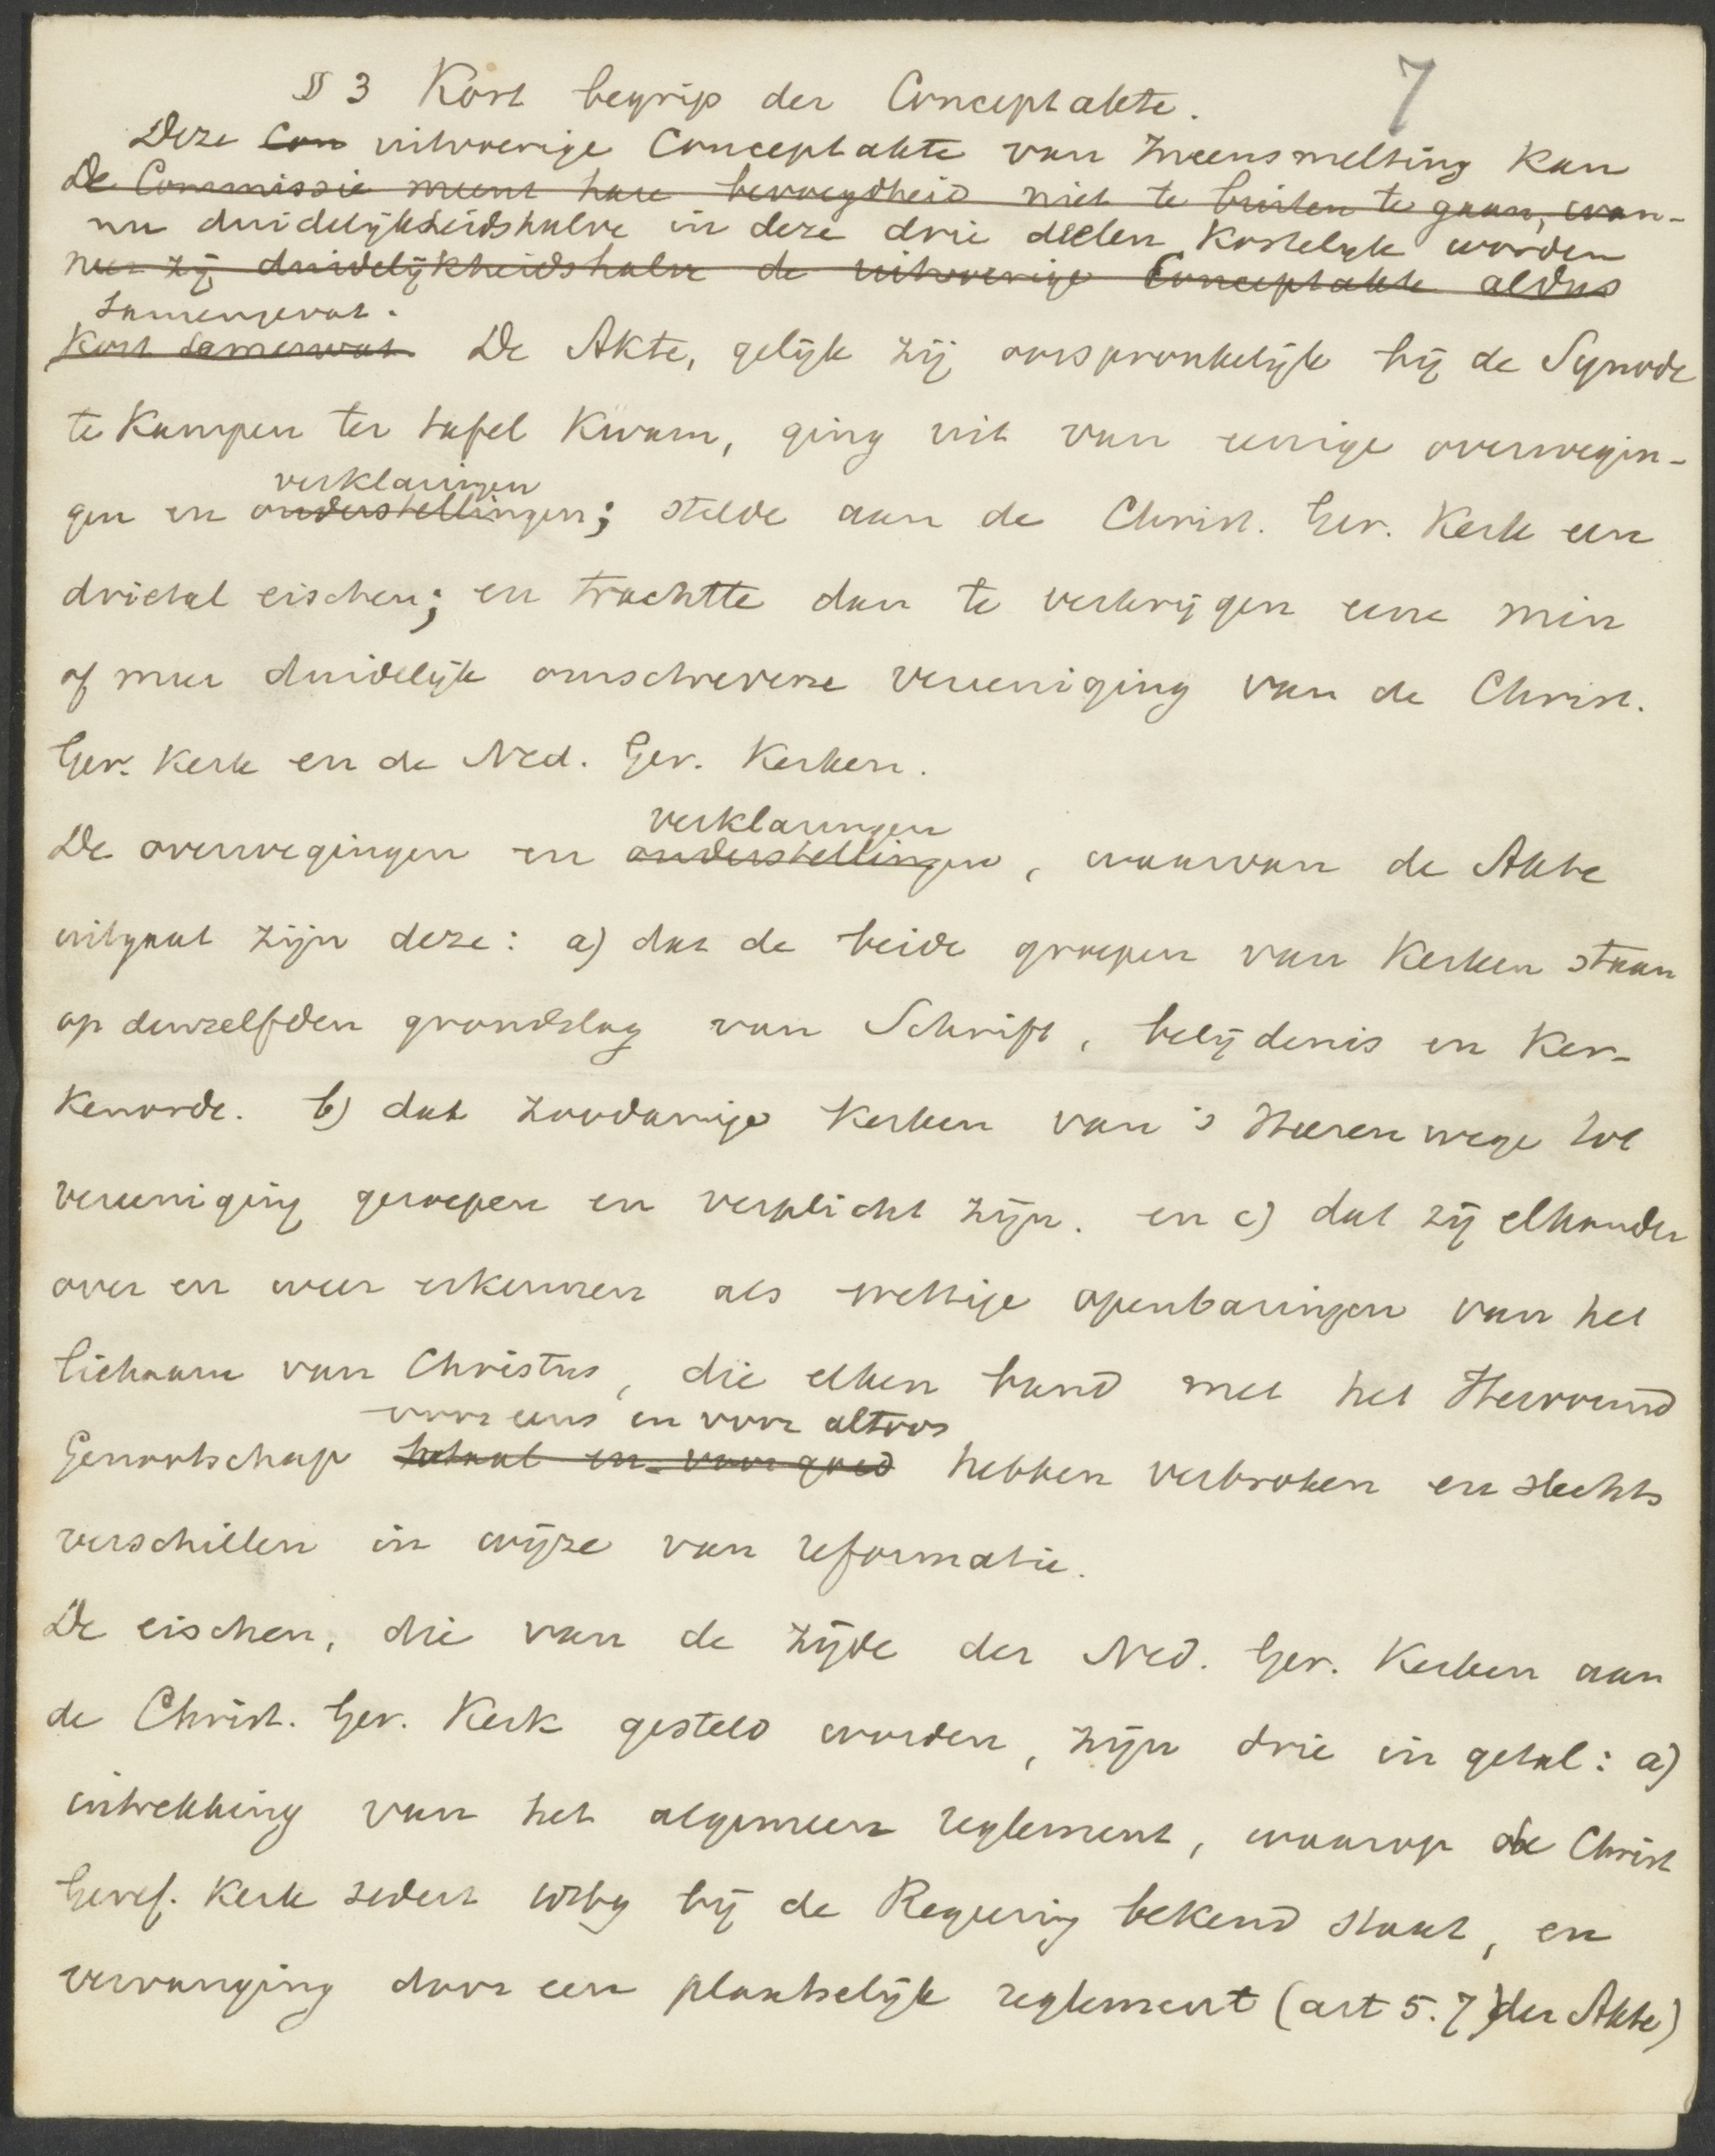 § 3 Kort begrip der Conceptakte.
7
Deze Con uitvoerige Conceptakte van Ineensmelting kan
De Commissie meent hare bevoegdheid niet te buiten te gaan, wan-
nu duidelijkheidshalve in deze drie deelen kortelijk worden
neer zij duidelijkheidshalve de uitvoerige Conceptakte aldus
samengevat.
kort samenvat. De Akte, gelijk zij oorspronkelijk bij de Synode
te Kampen ter tafel kwam, ging uit van eenige overwegin-
verklaringen
gen en onderstellingen; stelde aan de Christ. Ger. Kerk een
drietal eischen; en trachtte dan te verkrijgen eene min
of meer duidelijk omschrevene vereeniging van de Christ.
Ger. Kerk en de Ned. Ger. Kerken.
verklaringen
De overwegingen en onderstellingen, waarvan de Akte
uitgaat zijn deze: a) dat de beide groepen van Kerken staan
op denzelfden grondslag van Schrift, belijdenis en Ker-
kenorde. b) dat zoodanige Kerken van 's Heeren wege tot
vereeniging geroepen en verplicht zijn. en c) dat zij elkander
over en weer erkennen als wettige openbaringen van het
lichaam van Christus, die elken band met het Hervormd
voor eens en voor altoos
Genootschap totaal en voor goed hebben verbroken en slechts
verschillen in wijze van reformatie.
De eischen, die van de zijde der Ned. Ger. Kerken aan
de Christ. Ger. Kerk gesteld worden, zijn drie in getal: a)
intrekking van het algemeen reglement, waarop de Christ
Geref. Kerk sedert 1869 bij de Regering bekend staat, en
vervanging door een plaatselijk reglement (art 5. 7) der Akte)